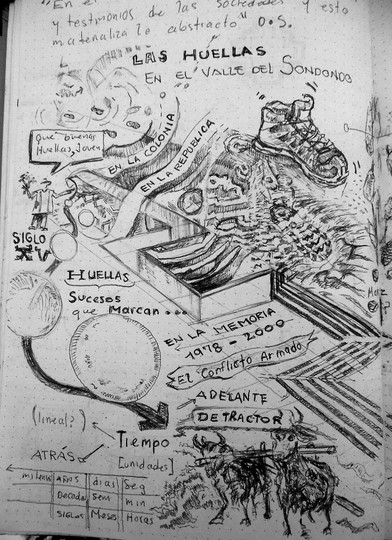 "En el
y testimonios de las sociedades y esto
materializa lo abstracto" O.S.
LAS HUELLAS
EN EL VALLE DEL SONDONOO
EN LA COLONIA
EN LA REPUBLICA
Que buenas
Huellas, Joven
SIGLO
HUELLAS
Sucesos
que Marcan...
EN LA MEMORIA
1978 - 2000
El Conflicto Armado
ADELANTE
DETRACTOR
(lineal?)
Tiempo
[unidades]
ATRÁS
milenio Años dias Seg
Decadas Sem min
SIGLOS Meses Horas